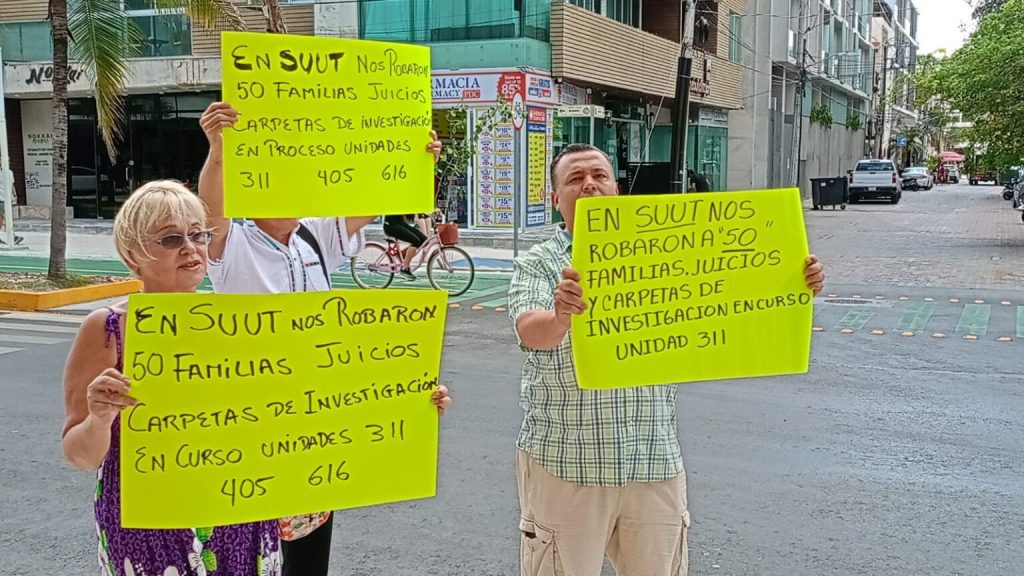 EN SUUT NOS ROBARON
50 FAMILIAS JUICIOS
CARPETAS DE INVESTIGACIO
EN PROCESO UNIDADES
311 405 616
EN SUUT NOS ROBARON
50 FAMILIAS JUICIOS
CARPETAS DE INVESTIGACIÓN
EN CURSO UNIDADES 311
405 616
EN SUUT NOS
ROBARON A "50"
FAMILIAS, JUICIOS
Y CARPETAS DE
INVESTIGACION EN CURSO
UNIDAD 311
MACIA
MACY
85